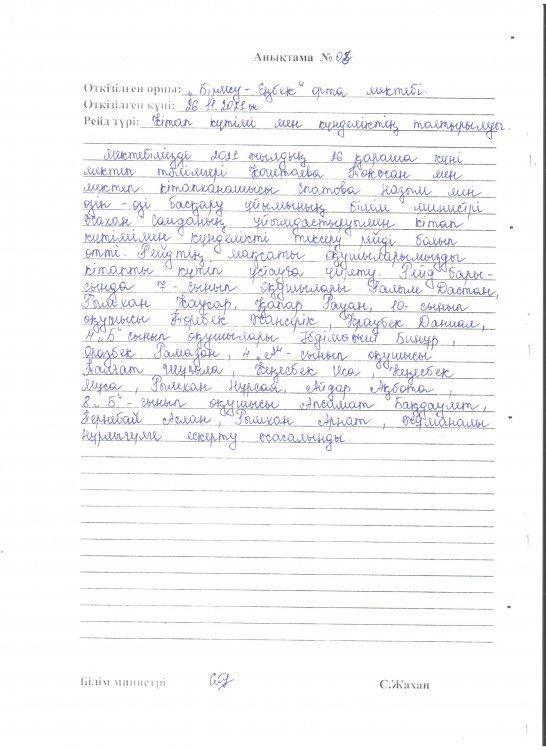 Анықтама № 03
Өткізілген орны: „Бірлесу - Еңбек" орта мектебі.
Өткізілген күні: 26.11.2021 ж
Рейд түрі: Кітап күтімі мен күнделіктің толтырылуы
Мектебімізде 2021 жылдың 26 қараша күні
мектеп тәлімгері Қоштаева Гүлжосан мен
мектеп кітапханашысы Уатова Назым мен
өзін - өзі басқару ұйымының білім министрі
Жахан Самданың ұйымдастыруымен кітап
күтімімен күнделікті тексеру рейді болып
өтті. Рейдтің мақсаты оқушыларымызды
кітапты күтіп ұстауға үйрету. Рейд бары-
сында 7 - сынып оқушылары Ғалым Дастан,
Рымхан Каусар, Қапар Рауан, 10- сынып
оқушысы Жансерік, Қраубек Даниал,
4 „Б" сынып оқушылары Әдіможит Бинұр,
Оразбек Рамазан, 4 „А"- сынып оқушысы
Талғат Шуғыла, Кеңесбек Иса, Кеңесбек
Мұса, Рымхан Нұрсая, Айдар Ақбота,
8 „Б" - сынып оқушысы Апсамат Бақдаулет,
Бернебай Аслан, Рымхан Арнат, Құрманалы
ескерту жасалынды.
Білім министрі
С.Жахан